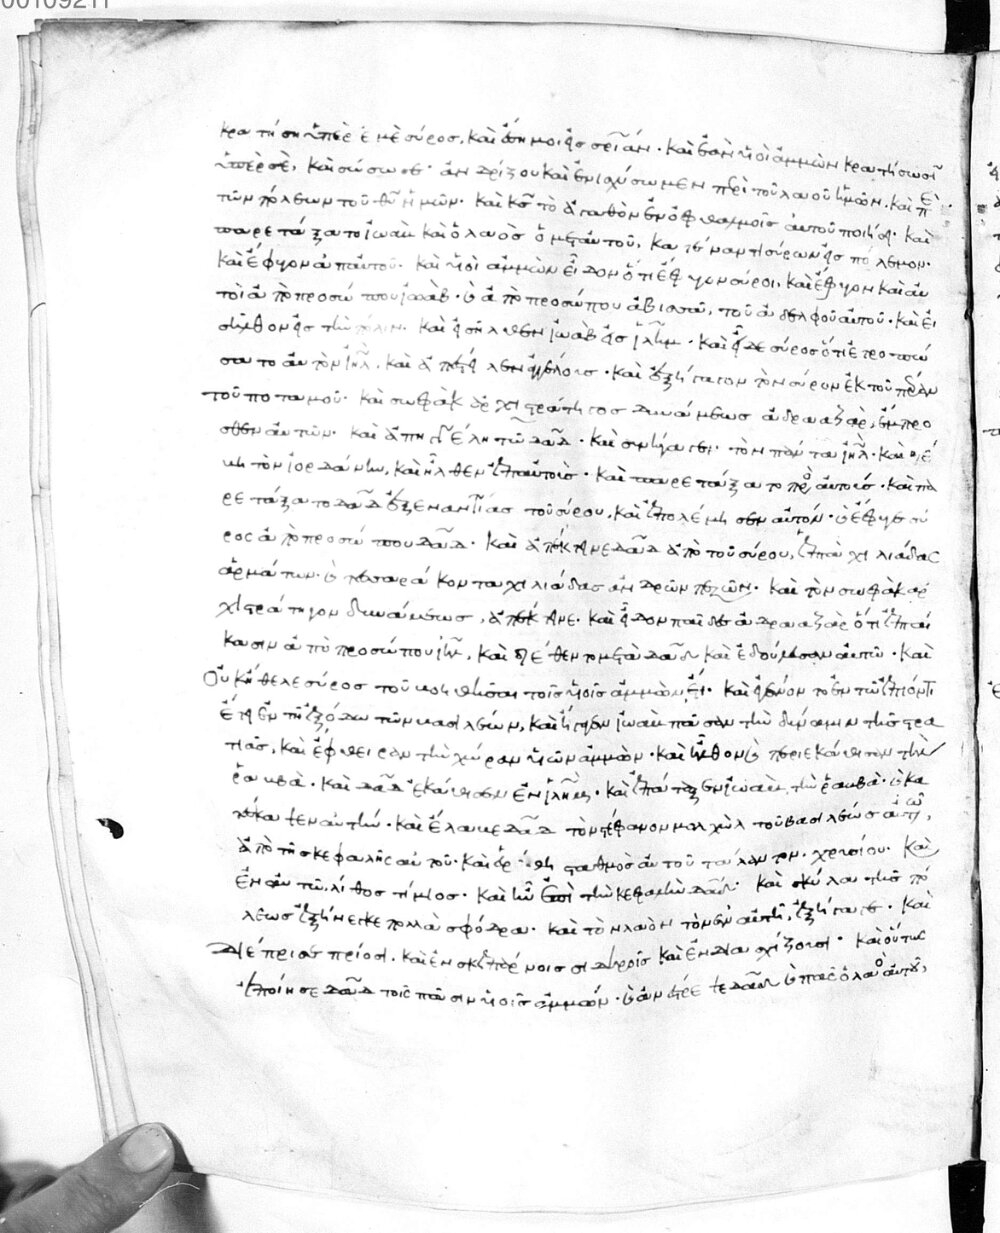 00109211
κρατήση ὑπὲρ ἐμὲ σύρος, καὶ ἔση μοι εἰς σρίαν. καὶ ἐὰν υἱοὶ ἀμμὼν κρατήσωσι
ὑπὲρ σὲ, καὶ σώσω σε. ἀνδρίζου καὶ ἐνισχύσωμεν περὶ τοῦ λαοῦ ἡμῶν. καὶ περὶ
τῶν πόλεων τοῦ θυ ἡμῶν. καὶ κς τὸ ἀγαθὸν ἐν ὀφθαλμοῖς αὐτοῦ ποιήσει. καὶ
παρετάξατο ἰωαὺ καὶ ὁ λαὸς ὁ μετ' αὐτοῦ, κατέναντι σύρων εἰς πόλεμον.
καὶ ἔφυγον ἀπ' αὐτοῦ. καὶ υἱοὶ ἀμμὼν εἶδον ὅτι ἔφυγον σύροι, καὶ ἔφυγον καὶ αὐ
τοὶ ἀπὸ προσώπου ἰωὰβ. καὶ ἀπὸ προσώπου ἀβισαὺ, τοῦ ἀδελφοῦ αὐτοῦ. καὶ εἰ
σῆλθον εἰς τὴν πόλιν. καὶ εἰσῆλθεν ἰωὰβ εἰς ἰλημ. καὶ εἶδε σύρος ὅτι ἐτροπώ
σατο αὐτὸν ιηλ, καὶ ἀπέστειλεν ἀγγέλους. καὶ ἐξήγαγον τὸν σύρον ἐκ τοῦ πέραν
τοῦ ποταμοῦ. καὶ σωφὰκ ἀρχιστράτηγος δυνάμεως ἀδρααζὰρ, ἔμπρο
σθεν αὐτῶν. καὶ ἀπηγγέλη τῷ δαδ. καὶ συνήγαγε τὸν πάντα ιηλ. καὶ διέ
βη τὸν ἰορδάνην, καὶ ἦλθεν ἐπ' αὐτοὺς. καὶ παρετάξατο πρὸς αὐτοὺς. καὶ πα
ρετάξατο δαδ ἐξεναντίας τοῦ σύρου, καὶ ἐπολέμησεν αὐτόν. καὶ ἔφυγε σύ
ρος ἀπὸ προσώπου δαδ. καὶ ἀπέκτεινε δαδ ἀπὸ τοῦ σύρου, ἑπτὰ χιλιάδας
ἁρμάτων. καὶ τεσσαράκοντα χιλιάδας ἀνδρῶν πεζῶν. καὶ τὸν σωφὰκ ἀρ
χιστράτηγον δυνάμεως, ἀπέκτεινε. καὶ εἶδον παῖδες ἀδρααζὰρ ὅτι ἐπταί
κασιν ἀπὸ προσώπου ιηλ, καὶ διέθεντο μετὰ δαδ καὶ ἐδούλευσαν αὐτῷ. καὶ
οὐκ ἤθελε σύρος τοῦ βοηθῆσαι τοῖς υἱοῖς ἀμμὼν ἔτι. καὶ ἐγένετο ἐν τῷ ἐπιόντι
ἔτει ἐν τῇ ἐξόδω τῶν βασιλέων, καὶ ἤγαγεν ἰωαὺ πᾶσαν τὴν δύναμιν τῆς στρα
τιᾶς, καὶ ἔφθειραν τὴν χώραν υἱῶν ἀμμὼν. καὶ ἦλθον καὶ περιεκάθισαν τὴν
ῥαυβὰ. καὶ δαδ ἐκάθισεν ἐν ιλημ. καὶ ἐπάταξεν ἰωαὺ τὴν ῥαυβὰ. καὶ κα
τέσκαψεν αὐτήν. καὶ ἔλαβε δαδ τὸν στέφανον μολχὼλ τοῦ βασιλέως αὐτῶν,
ἀπὸ τῆς κεφαλῆς αὐτοῦ. καὶ εὑρέθη σταθμὸς αὐτοῦ τάλαντον χρυσίου. καὶ
ἐν αὐτῷ λίθος τίμιος. καὶ ἦν ἐπὶ τὴν κεφαλὴν δαδ. καὶ σκῦλα τῆς πό
λεως ἐξήνεγκε πολλὰ σφόδρα. καὶ τὸν λαὸν τὸν ἐν αὐτῇ, ἐξήγαγε. καὶ
διέπρισε πρίοσι, καὶ ἐν σκεπάρνοις σιδηροῖς καὶ ἐν διασχίζουσι. καὶ οὕτως
ἐποίησε δαδ τοῖς πᾶσιν υἱοῖς ἀμμών. καὶ ἀνέστρεψε δαδ καὶ πᾶς ὁ λαὸς αὐτοῦ,